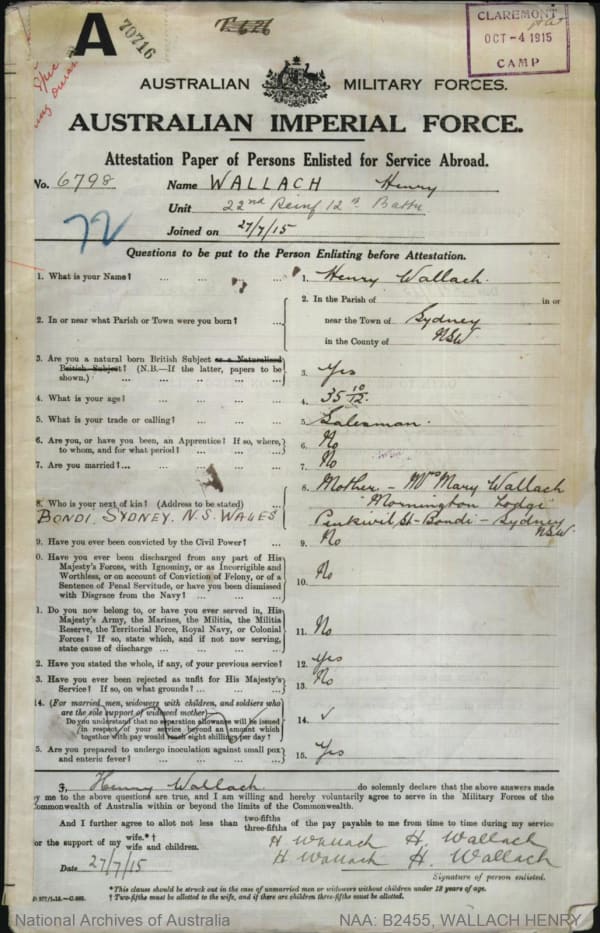 A
70716
CLAREMONT
OCT -4 1915
CAMP
AUSTRALIAN MILITARY FORCES.
AUSTRALIAN IMPERIAL FORCE.
Attestation Paper of Persons Enlisted for Service Abroad.
No. 6798 Name WALLACH Henry
Unit 22nd Reinf 12th Battn
72
Joined on 27/7/15
Questions to be put to the Person Enlisting before Attestation.
1. What is your Name? ... ... ... ... 1. Henry Wallach.
2. In or near what Parish or Town were you born? ... 2. In the Parish of in or
near the Town of Sydney
in the County of NSW
3. Are you a natural born British Subject or a Naturalized
British Subject? (N.B.—If the latter, papers to be
shown.) ... ... ... ... ... 3. Yes
4. What is your age? ... ... ... ... 4. 35 10/12.
5. What is your trade or calling? ... ... ... 5. Salesman.
6. Are you, or have you been, an Apprentice? If so, where,
to whom, and for what period? ... ... ... 6. No
7. Are you married? ... ... ... ... 7. No
8. Who is your next of kin? (Address to be stated) ... 8. Mother - Mrs Mary Wallach
"Mornington Lodge"
BONDI, SYDNEY. N.S. WALES Penkivil St - Bondi - Sydney
NSW
9. Have you ever been convicted by the Civil Power? ... 9. No
0. Have you ever been discharged from any part of His
Majesty's Forces, with Ignominy, or as Incorrigible and
Worthless, or on account of Conviction of Felony, or of a
Sentence of Penal Servitude, or have you been dismissed
with Disgrace from the Navy? ... ... ... 10. No
1. Do you now belong to, or have you ever served in, His
Majesty's Army, the Marines, the Militia, the Militia
Reserve, the Territorial Force, Royal Navy, or Colonial
Forces? If so, state which, and if not now serving,
state cause of discharge ... ... ... ... 11. No
2. Have you stated the whole, if any, of your previous service? 12. Yes
3. Have you ever been rejected as unfit for His Majesty's
Service? If so, on what grounds? ... ... ... 13. No
14. (For married men, widowers with children, and soldiers who
are the sole support of widowed mother)—
Do you understand that no separation allowance will be issued
in respect of your service beyond an amount which
together with pay would reach eight shillings per day? 14 ✓
5. Are you prepared to undergo inoculation against small pox
and enteric fever? ... ... ... ... 15. Yes
I, Henry Wallach. do solemnly declare that the above answers made
by me to the above questions are true, and I am willing and hereby voluntarily agree to serve in the Military Forces of the
Commonwealth of Australia within or beyond the limits of the Commonwealth.
And I further agree to allot not less than two-fifths three-fifths of the pay payable to me from time to time during my service
for the support of my wife.*† wife and children. H Wallach H. Wallach
H Wallach H. Wallach
Date 27/7/15
Signature of person enlisted.
*This clause should be struck out in the case of unmarried men or widowers without children under 18 years of age.
† Two-fifths must be allotted to the wife, and if there are children three-fifths must be allotted.
National Archives of Australia NAA: B2455, WALLACH HENRY